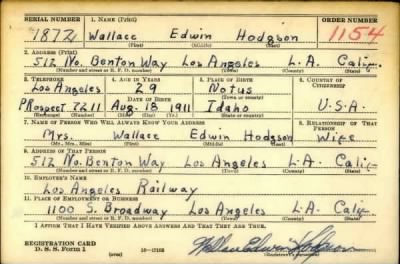 SERIAL NUMBER 1. NAME (Print) ORDER NUMBER
1872 Wallace Edwin Hodgson 1154
(First) (Middle) (Last)
2. ADDRESS (Print)
512 No. Benton Way Los Angeles L.A. Calif.
(Number and street or R. F. D. number) (Town) (County) (State)
3. TELEPHONE 4. AGE IN YEARS 5. PLACE OF BIRTH 6. COUNTRY OF CITIZENSHIP
Los Angeles 29 Notus
DATE OF BIRTH (Town or county)
PRospect 7211 Aug. 18 1911 Idaho U.S.A.
(Exchange) (Number) (Mo.) (Day) (Yr.) (State or country)
7. NAME OF PERSON WHO WILL ALWAYS KNOW YOUR ADDRESS 8. RELATIONSHIP OF THAT PERSON
Mrs. Wallace Edwin Hodgson Wife
(Mr., Mrs., Miss) (First) (Middle) (Last)
9. ADDRESS OF THAT PERSON
512 No. Benton Way Los Angeles L.A. Calif.
(Number and street or R. F. D. number) (Town) (County) (State)
10. EMPLOYER'S NAME
Los Angeles Railway
11. PLACE OF EMPLOYMENT OR BUSINESS
1100 S. Broadway Los Angeles L.A. Calif.
(Number and street or R. F. D. number) (Town) (County) (State)
I AFFIRM THAT I HAVE VERIFIED ABOVE ANSWERS AND THAT THEY ARE TRUE.
REGISTRATION CARD
D. S. S. Form 1 (over) Wallace Edwin Hodgson
(Registrant's signature)